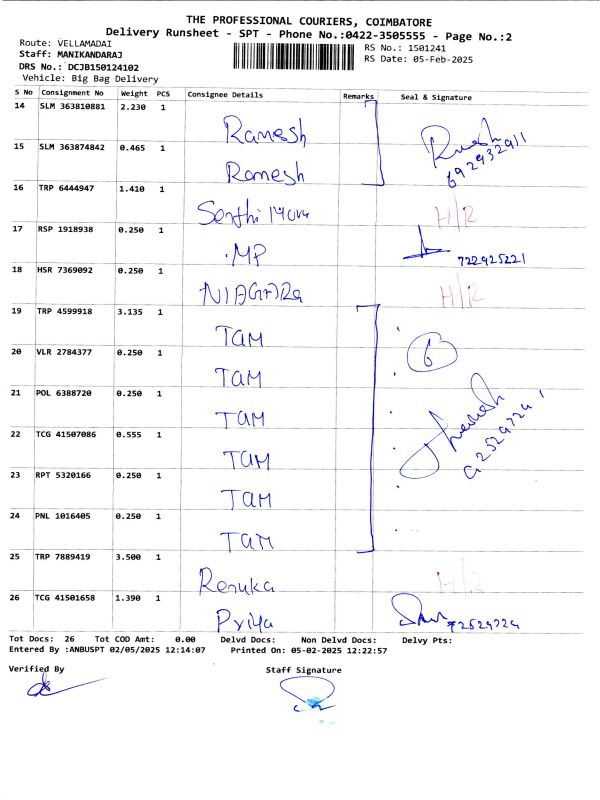 THE PROFESSIONAL COURIERS, COIMBATORE
Delivery Runsheet - SPT - Phone No.:0422-3505555 - Page No.:2
Route: VELLAMADAI
RS No.: 1501241
Staff: MANIKANDARAJ
RS Date: 05-Feb-2025
DRS No.: DCJB150124102
Vehicle: Big Bag Delivery
S No Consignment No Weight PCS Consignee Details Remarks Seal & Signature
14 SLM 363810881 2.230 1 Ramesh
15 SLM 363874842 0.465 1 Ramesh
16 TRP 6444947 1.410 1 H/R
17 RSP 1918938 0.250 1 MP 722925221
18 HSR 7369092 0.250 1 NIAGARA H/R
19 TRP 4599918 3.135 1 TAM 6
20 VLR 2784377 0.250 1 TAM
21 POL 6388720 0.250 1 TAM
22 TCG 41507086 0.555 1 TAM
23 RPT 5320166 0.250 1 TAM
24 PNL 1016405 0.250 1 TAM
25 TRP 7889419 3.500 1 Renuka H/R
26 TCG 41501658 1.390 1 Priya
Tot Docs: 26 Tot COD Amt: 0.00 Delvd Docs: Non Delvd Docs: Delvy Pts:
Entered By :ANBUSPT 02/05/2025 12:14:07 Printed On: 05-02-2025 12:22:57
Verified By Staff Signature